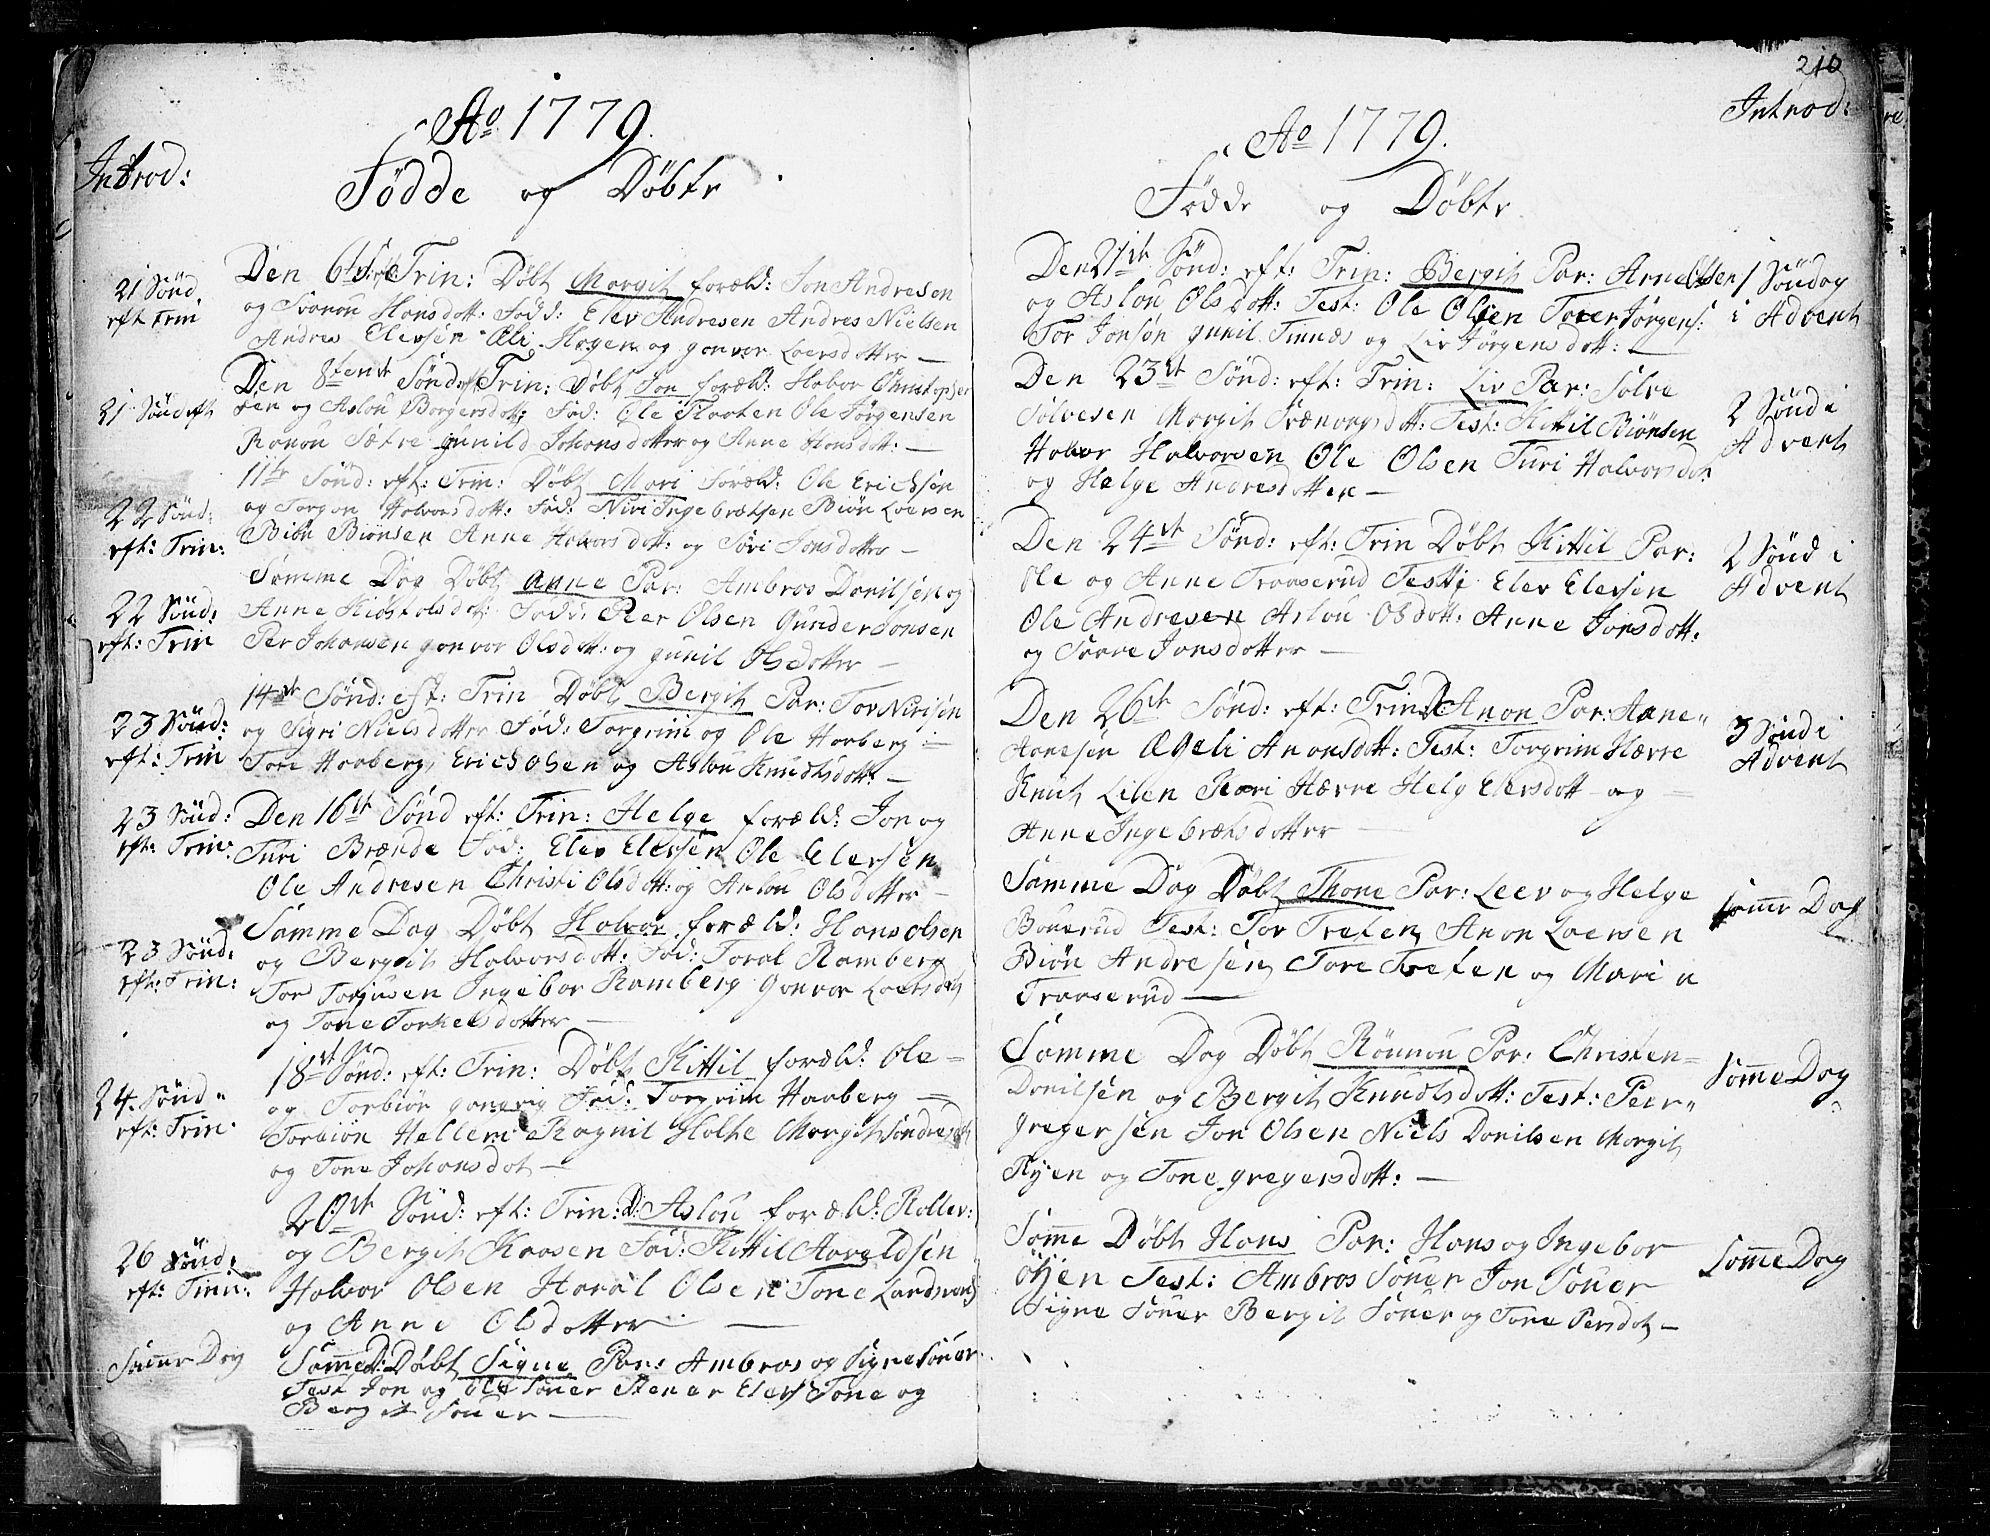 Ao 1779.
Introd:
Födde og Döbte
21 Sönd
eft Trin
Den 6te S. eft Trin: Döbt Margit foræld: Jon Andresen
og Hansdott: Fad: Elev Andresen Andres Nielsen
Andres Elevsen Eli Hagen og gonvor Loersdotter —
21 Sönd eft
Den 8tende Sönd eft Trin: Döbt Jon foræld: Halvor Christopher
sen og Aslou Borgersdott: Fad: Ole Ole Jörgensen
Ranou Sætre gunild Johansdotter og Anne Hansdott: —
22 Sönd:
eft: Trin:
11te Sönd: eft: Trin: Döbt Mari Foræld: Ole Erichsen
og Torgon Halvorsdott: Fad: Niri Ingebretsen Biön Loersen
Biön Biönsen Anne Halvorsdott: og Siri Jonsdotter —
22 Sönd:
eft: Trin
Samme Dag Döbt Anne Par: Ambros Danilsen og
Anne Fad: Peer Olsen Gunder Jonsen
Per Johansen gonvor Olsdott: og gunil Olsdotter —
23 Sönd:
eft: Trin
14de Sönd: eft: Trin Döbt Bergit Par: Tor Nirisen
og Sigri Nielsdotter Fad: Torgrim og Ole Haaberg
Tore Haaberg, Erich Olsen og Aslou Knudtsdott: —
23 Sönd:
eft: Trin:
Den 16de Sönd eft: Trin: Helge foræld: Jon og
Turi Brænde Fad: Elev Elevsen Ole Elevsen
Ole Andresen Christi Olsdott: og Anlou Olsdotter —
23 Sönd:
eft: Trin:
Samme Dag Döbt Halvor foræld: Hans Olsen
og Bergit Halvorsdott: Fad: Toral Ramberg
Tor Torjusen Ingebor Ramberg Gonvor Loersdot
og Tone Torkelsdotter —
24. Sönd
eft: Trin:
18de Sönd: eft: Trin: Döbt Kittil foræld: Ole
og Torbiör Fad: Torgrim Haaberg
Torbiön Hellem Ragnil Holte Margit
og Tone Johansdot —
26 Sönd:
eft: Trin:
20de Sönd: eft: Trin: D: Aslou foræld: Rollev:
og Bergit Kaasen Fad: Kittil Haraldsen
Halvor Olsen Haral Olsen Tone
og Anne Olsdotter —
Samme Dag
Samme D: Döbt Signe Par: Ambros og Signe Söuer
Test Jon og Ole Söuer Stener Elevs Tone og
Bergit Söuer —
210
Introd:
Ao 1779.
Födde og Döbte
Den 21de Sönd: eft: Trin: Bergit Par: Arne Olsen
og Aslou Olsdott: Test: Ole Olsen Tover Jörgens:
Tor Jonsön gunil Tinnæs og Liv Jörgensdott: —
1 Söndag
i Advent
Den 23de Sönd: eft: Trin: Liv Par: Sölve
Sölvesen Margit Test: Kittil Biönsen
Halvor Halvorsen Ole Olsen Turi Halvorsdot
og Helge Andresdotter —
2 Sönd i
Advent
Den 24de Sönd: eft: Trin Döbt Kittil Par:
Ole og Anne Traaserud Test: Elev Elevsen
Ole Andresen Aslou Olsdott: Anne Jonsdott:
og Saave Jonsdotter —
2 Sönd i
Advent
Den 26de Sönd: eft: Trin D Anon Par: Aane
Aanesen Ageli Anonsdott: Test: Torgrim Hærre
Knut Lilen Kari Hærre Helg Elevsdott og
Anne Ingebretsdotter —
3 Sönd i
Advent
Samme Dag Döbt Thone Par: Leev og Helge
Bonerud Test: Tor Treten Anon Loersen
Biön Andresen Tore Treten og Mari
Traaserud —
Samme Dag
Samme Dag Döbt Rönnou Par: Christen
Danilsen og Bergit Knudtsdott: Test: Peer
gregersen Jon Olsen Niels Danilsen Margit
Ryen og Tone gregersdott: —
Somme Dag
Somme Döbt Hans Par: Hans og Ingebor
Öyen Test: Ambros Söuer Jon Söuer
Signe Söuer Bergit Söuer og Tone Persdot —
Somme Dag